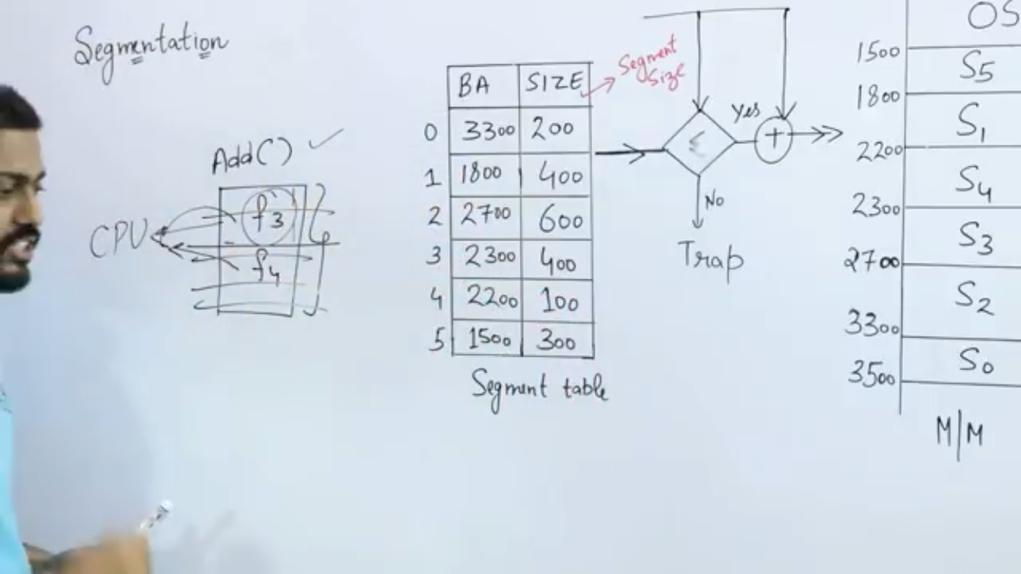 Segmentation
Add()
CPU
f3
f4
BA SIZE
0 3300 200
1 1800 400
2 2700 600
3 2300 400
4 2200 100
5 1500 300
Segment table
Segment
Size
≤
Yes
+
No
Trap
OS
1500
S5
1800
S1
2200
S4
2300
S3
2700
S2
3300
S0
3500
M/M